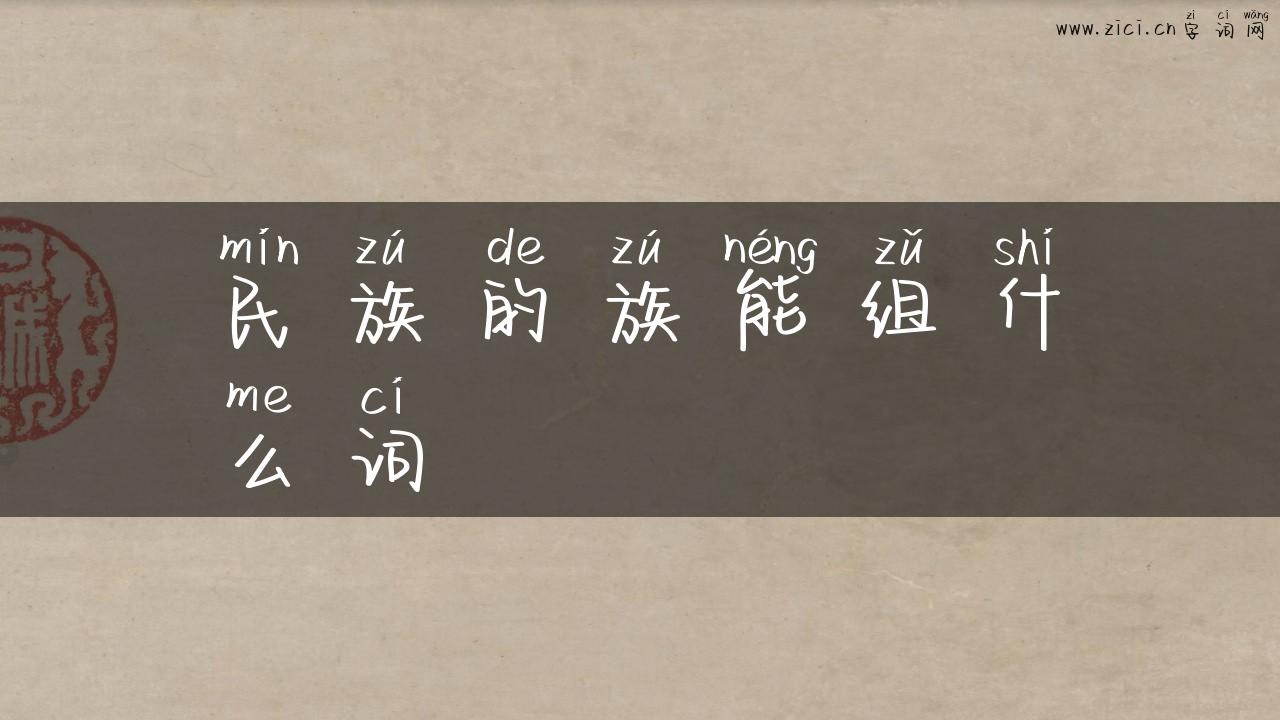 zì cí wǎng
www.zici.cn 字词网
mín zú de zú néng zǔ shí
民族的族能组什
me cí
么词